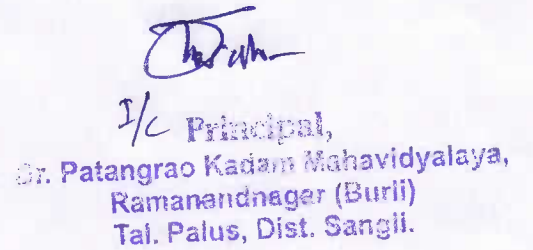 I/C Principal,
Dr. Patangrao Kadam Mahavidyalaya,
Ramanandnagar (Burli)
Tal. Palus, Dist. Sangli.